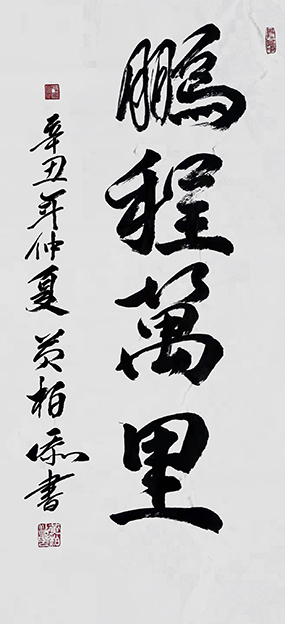 鵬程萬里
辛丑年仲夏黄柏添書